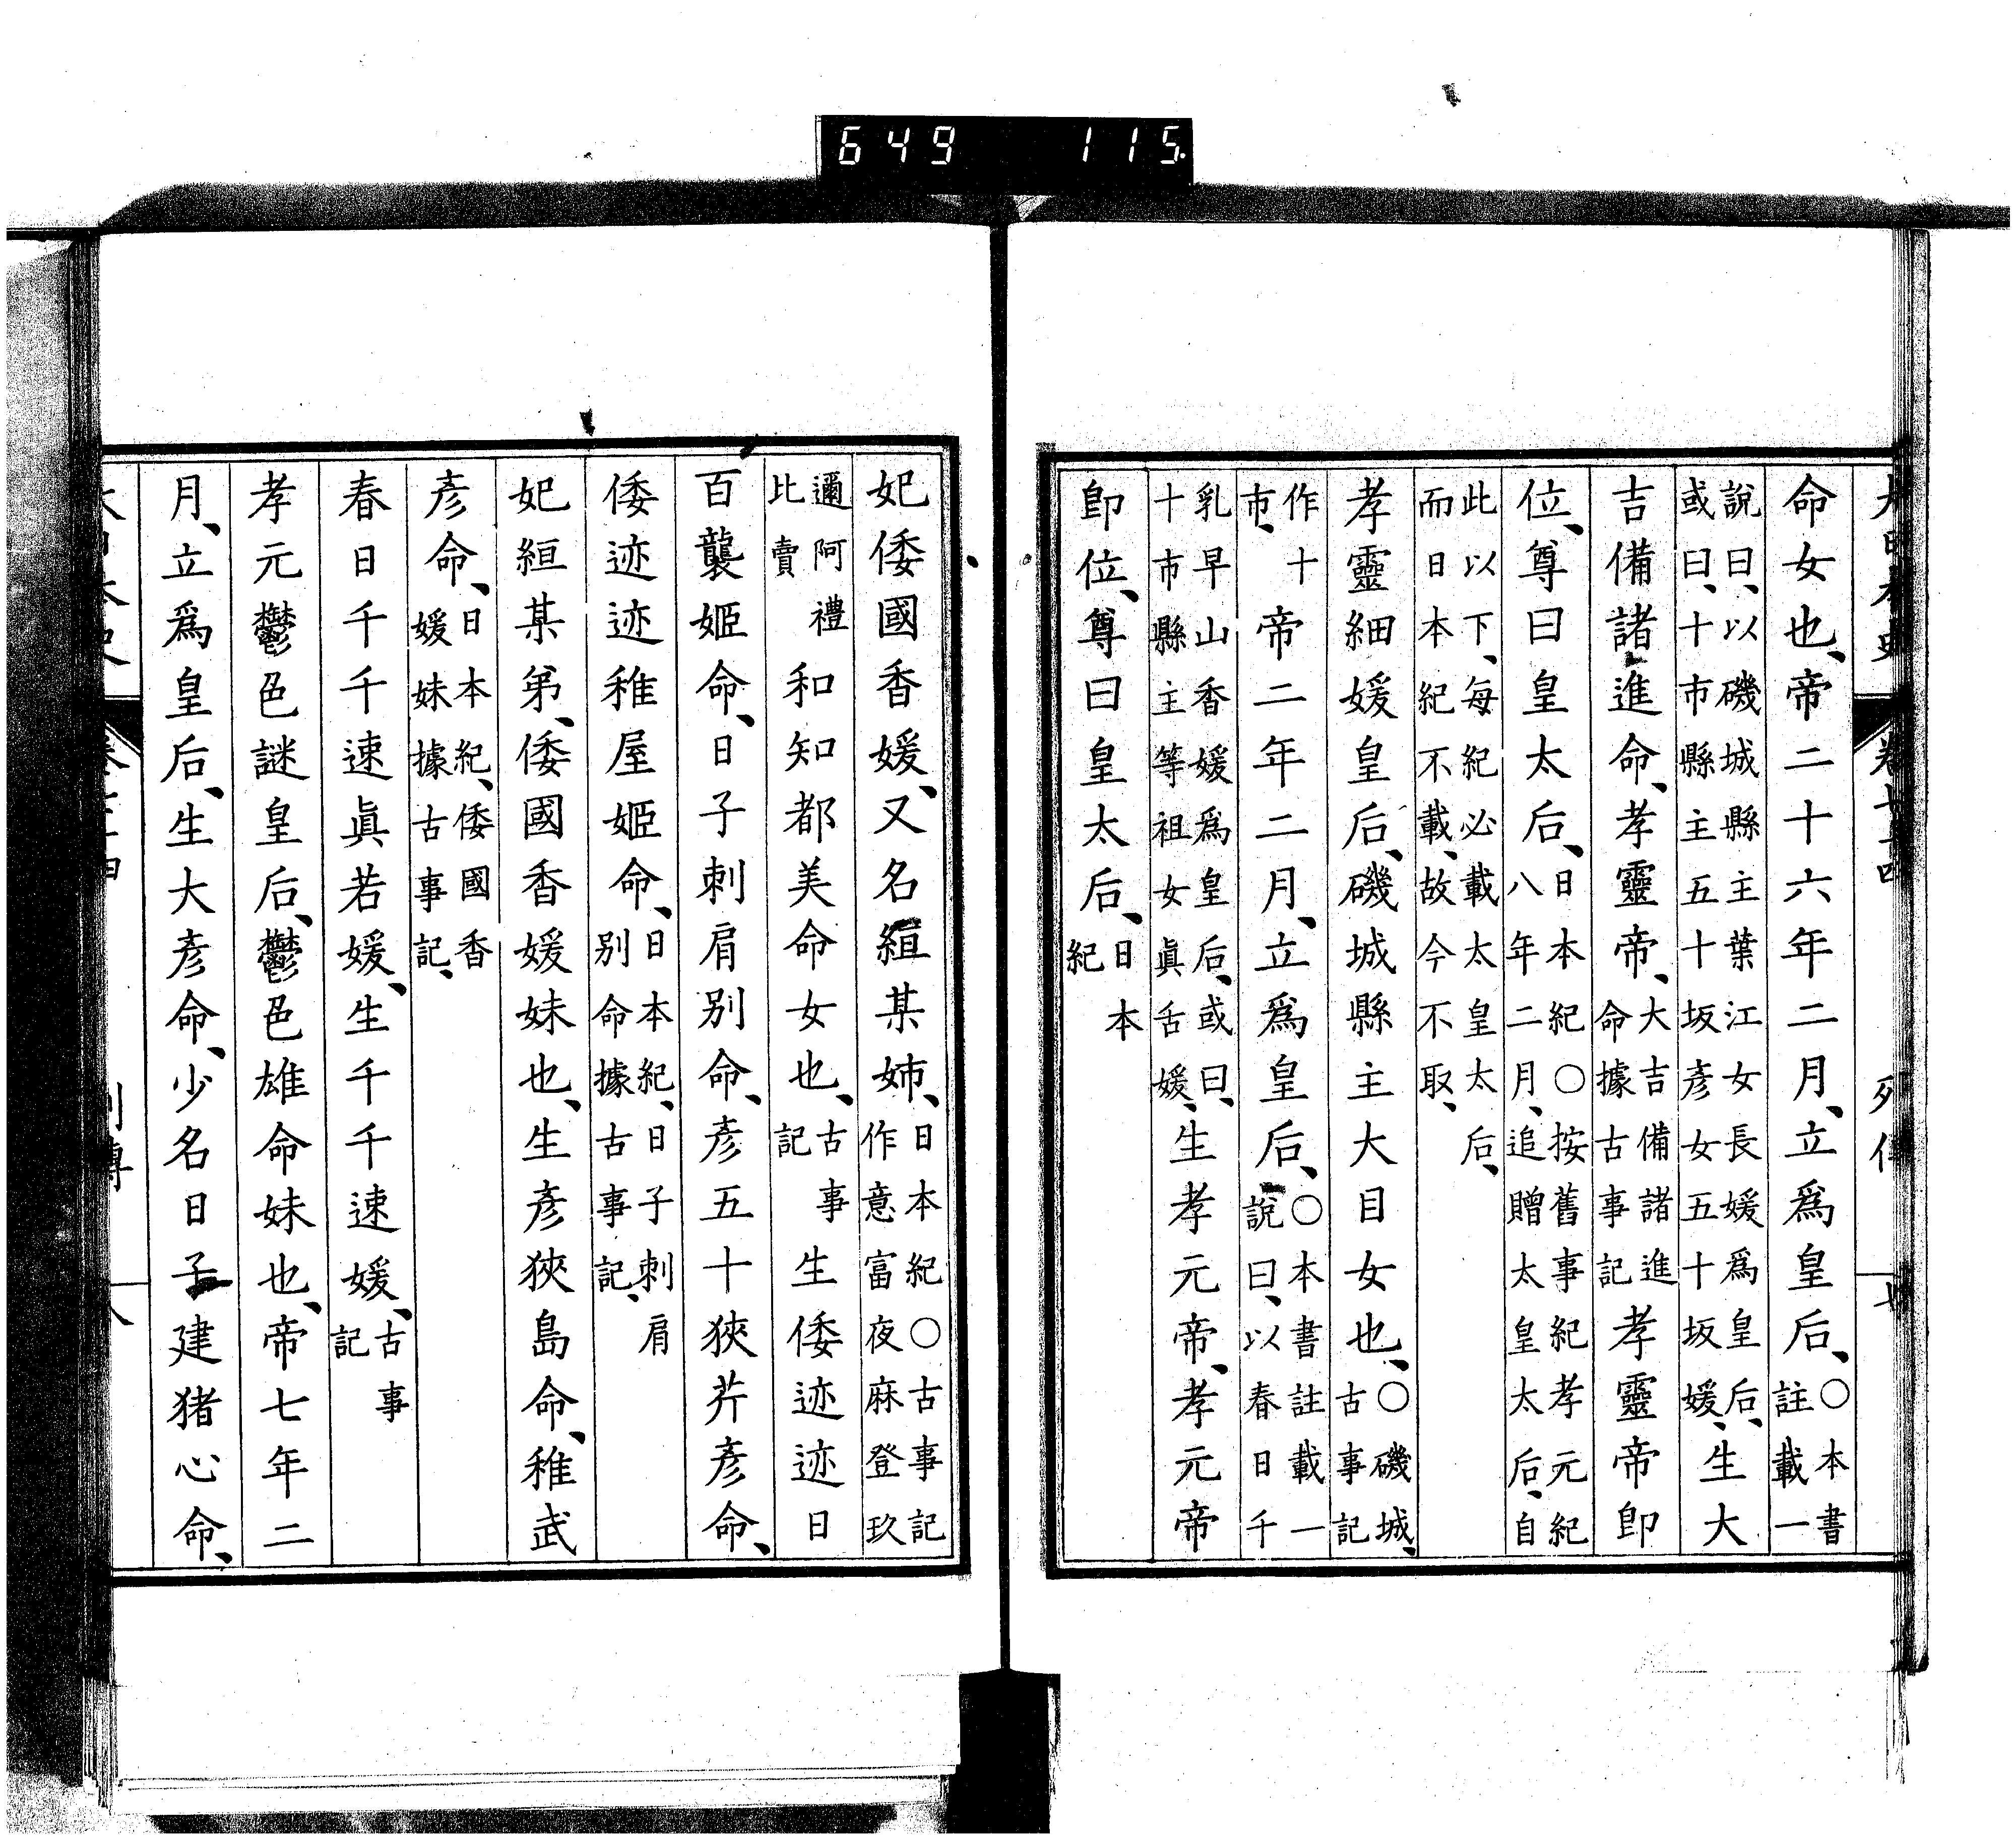 649 115
大日本史 卷七十四 列傳 七
命女也、帝二十六年二月、立爲皇后、〇本書註載一
說曰、以磯城縣主葉江女長媛爲皇后、或曰、十市縣主五十坂彥女五十坂媛、生大
吉備諸進命、孝靈帝、大吉備諸進命據古事記孝靈帝卽
位、尊曰皇太后、日本紀〇按舊事紀孝元紀八年二月、追贈太皇太后、自
此以下、每紀必載太皇太后、而日本紀不載、故今不取、
孝靈細媛皇后、磯城縣主大目女也、〇磯城、古事記
作十市、帝二年二月、立爲皇后、〇本書註載一說曰、以春日千
乳早山香媛爲皇后、或曰、十市縣主等祖女眞舌媛、生孝元帝、孝元帝
卽位、尊曰皇太后、日本紀
妃倭國香媛、又名絙某姉、日本紀〇古事記作意富夜麻登玖
邇阿禮比賣和知都美命女也、古事記生倭迹迹日
百襲姬命、日子刺肩別命、彥五十狹芹彥命、
倭迹迹稚屋姬命、日本紀、日子刺肩別命據古事記、
妃絙某弟、倭國香媛妹也、生彥狹島命、稚武
彥命、日本紀、倭國香媛妹據古事記、
春日千千速眞若媛、生千千速媛、古事記
孝元鬱色謎皇后、鬱色雄命妹也、帝七年二
月、立爲皇后、生大彥命、少名日子建猪心命、